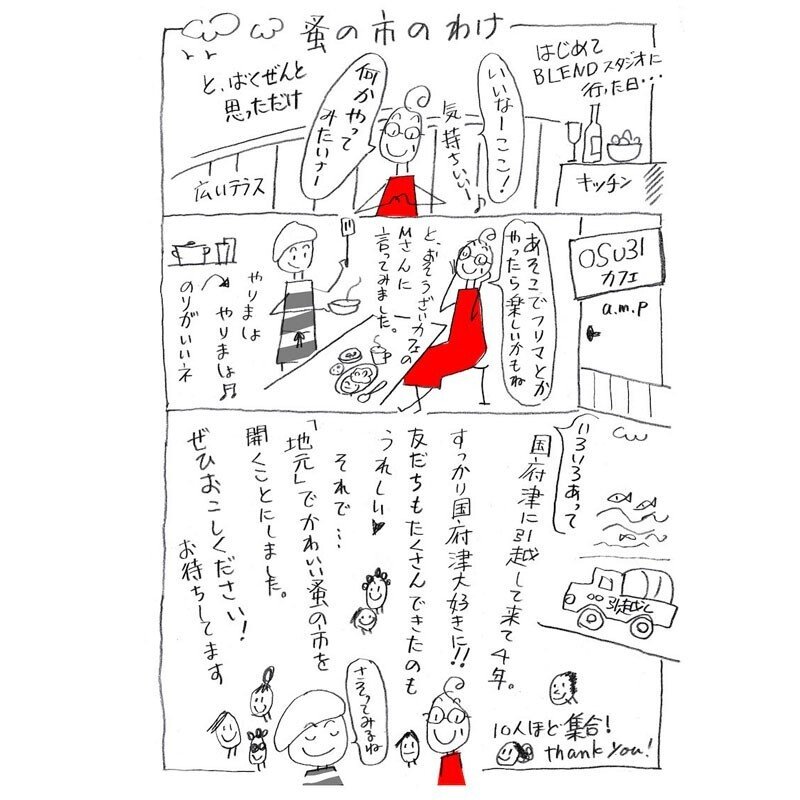 蚤の市のわけ
はじめて
BLENDスタジオに
行った日…
いいなーここ!
気持ちいいー♪
何かやって
みたいナー
と、ばくぜんと
思っただけ
広いテラス
キッチン
OSU31
カフェ
a.m.p
あそこでフリマとか
やったら楽しいかもね
と、おそうざいカフェの
Mさんに
言ってみました。
やりまは
やりまは♬
のりがいいネ
いろいろあって
国府津に引越して来て4年。
引越し
すっかり国府津大好きに!!
友だちもたくさんできたのも
うれしい♥
それで…
「地元」でかわいい蚤の市を
開くことにしました。
ぜひおこしください!
お待ちしてます
さそってみるね
10人ほど集合!
thank you!